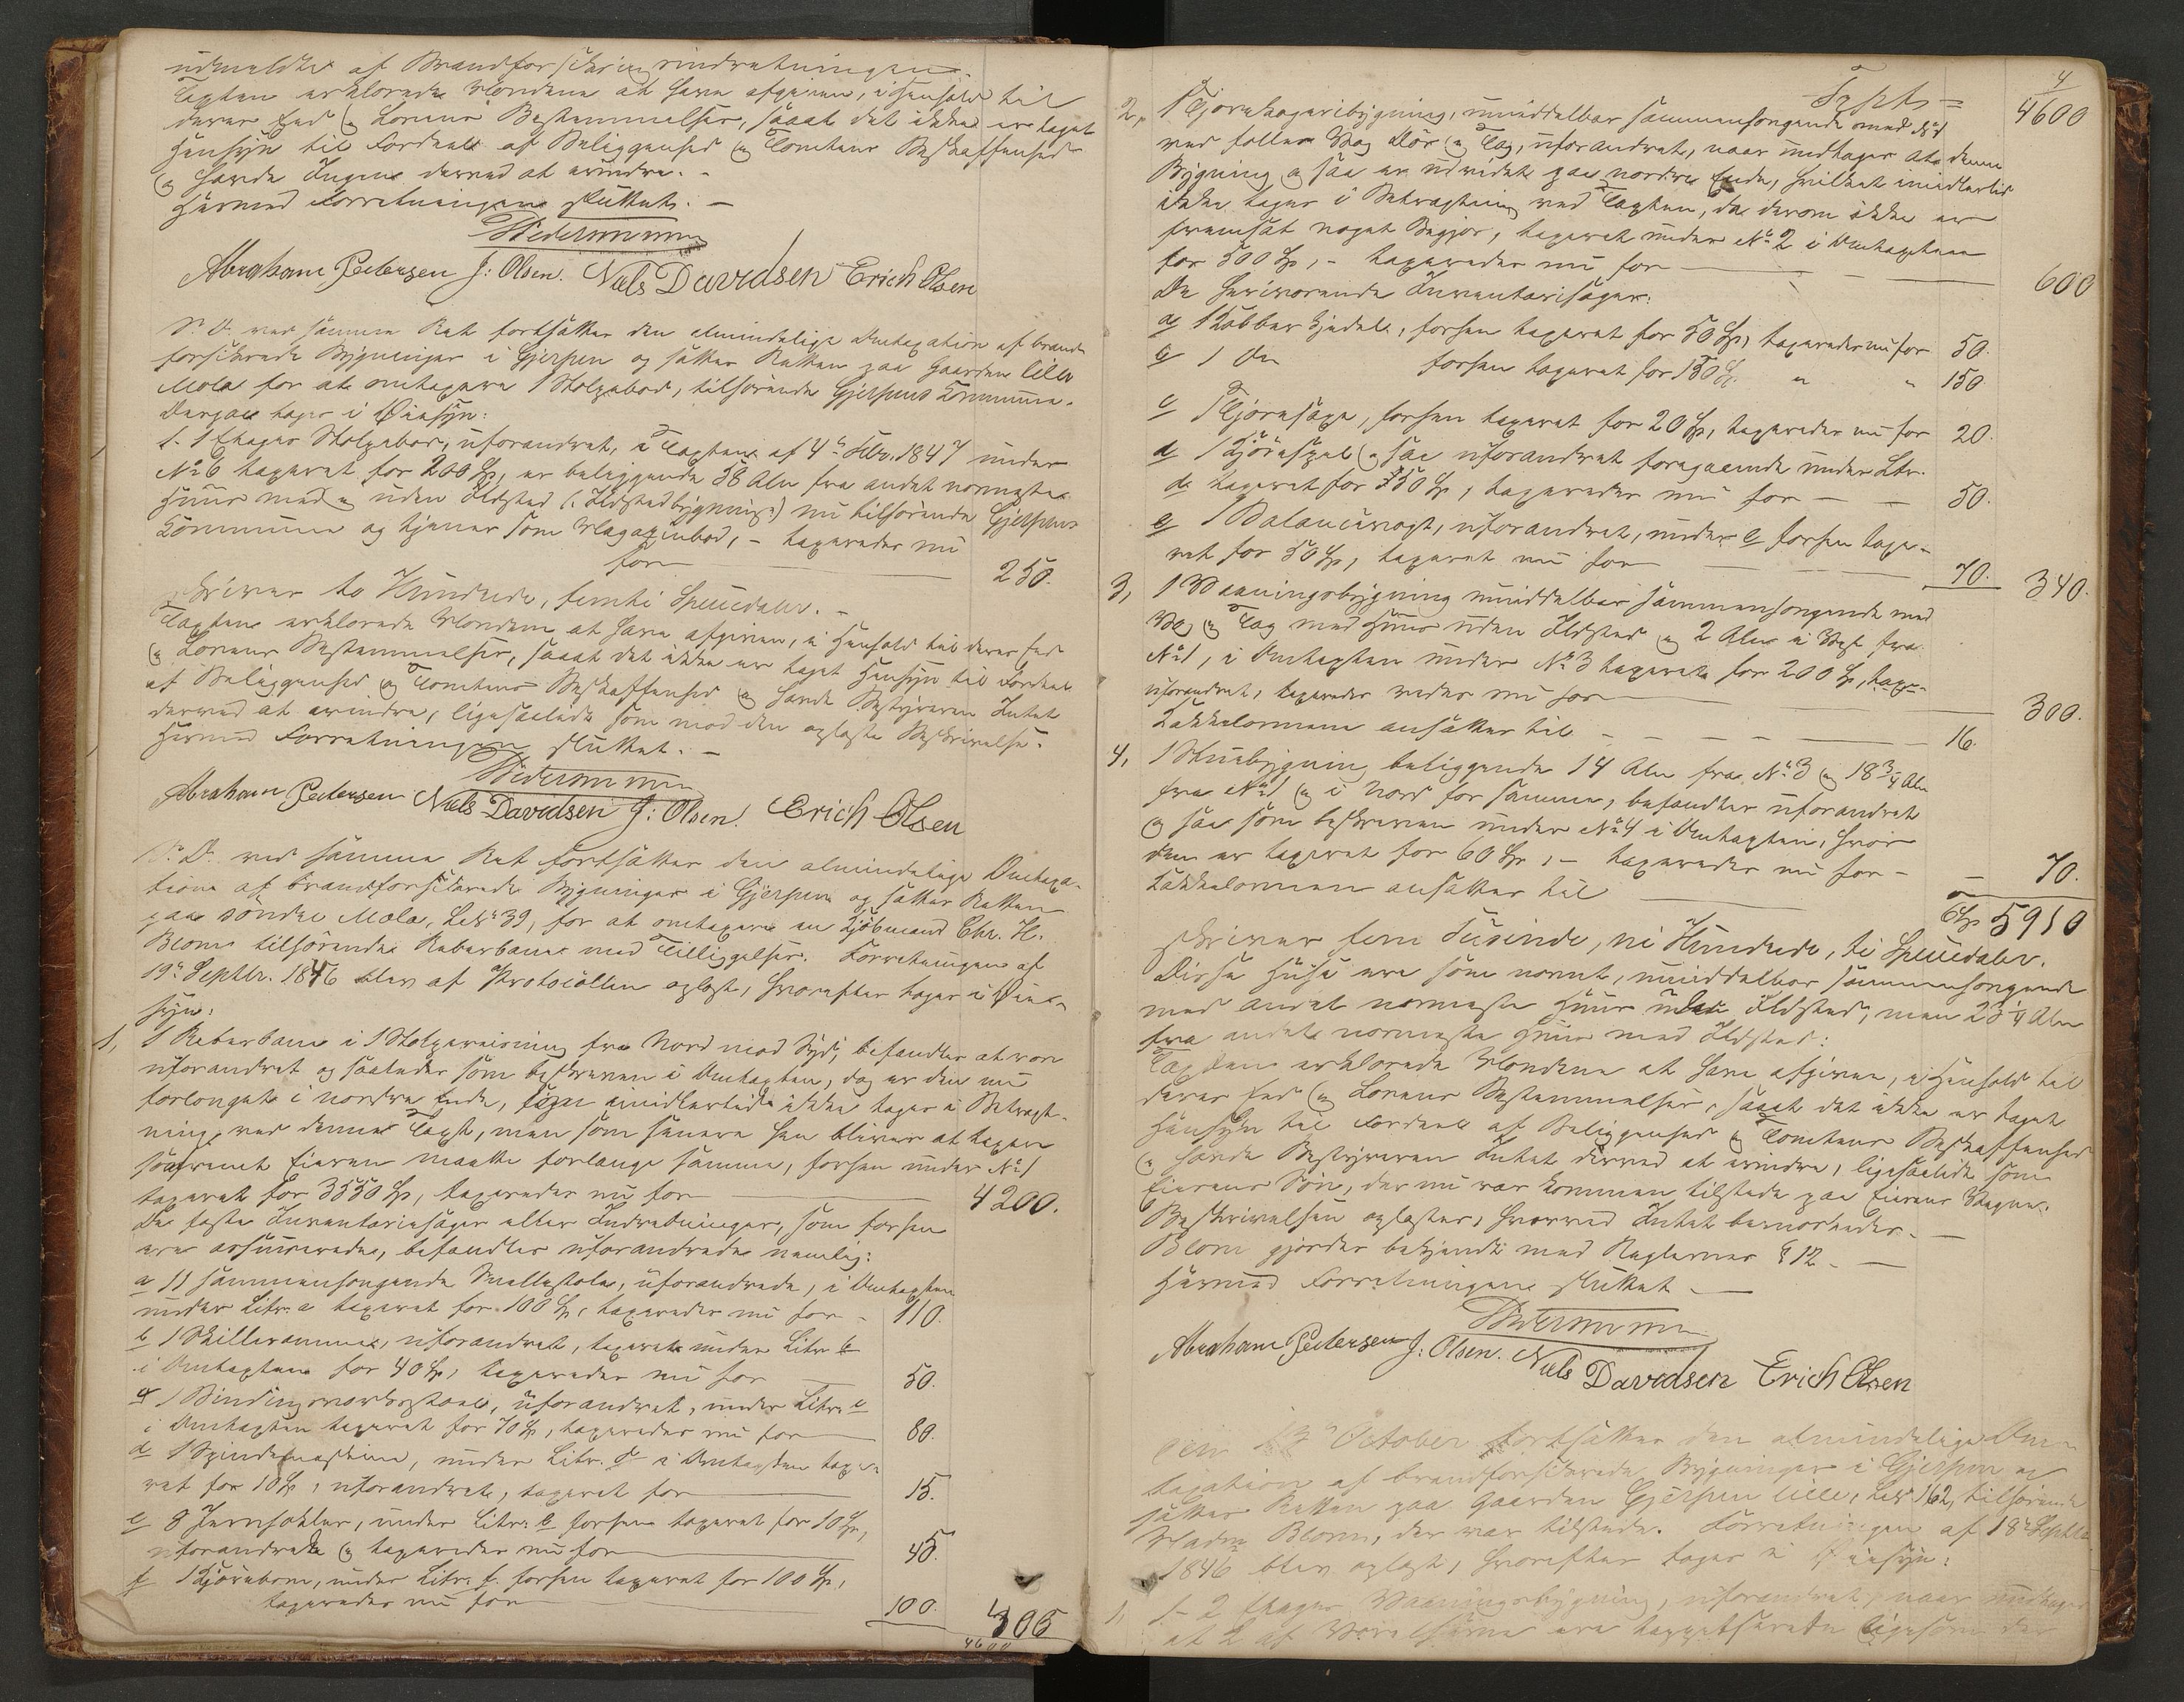 udmeldte af Brandforsikringsindretningen.
Taxten erklærede Mændene at have afgiven, i Henhold til
deres Eed og Lovens Bestemmelser, saaat det ikke er taget
Hensyn til Fordeele af Beliggenhed og Tomtens Beskaffenhed
og havde Ingen derved at erindre. -
Hermed Forretningen sluttet. -
Abraham Pedersen J: Olsen. Niels Davidsen Erich Olsen
S. D. ved samme Ret fortsættes den almindelige Omtaxation af brand-
forsikrede Bygninger i Gjerpen og sattes Retten paa Gaarden lille
Mæla for at omtaxere 1 Stolpebod, tilhørende Gjerpens Kommune.
Derpaa toges i Øiesyn:
1. 1 Etages Stolpebod, uforandret, i Taxten af 4de Febr. 1847 under
No 6 taxeret for 200 Sp, er beliggende 38 Alen fra andet nærmeste
Huus med og uden Ildsted (: Ildstedbygning :) nu tilhørende Gjerpens
Kommune og tjener som Magazinbod, - taxeredes nu
for 250.
skriver to Hundrede, femti Speciedaler. -
Taxten erklærede Mændene at have afgiven, i Henhold til deres Eed
og Lovens Bestemmelser, saaat det ikke er taget Hensyn til Fordeele
af Beliggenhed og Tomtens Beskaffenhed og havde Bestyreren Intet
derved at erindre, ligesaalidt som mod den oplæste Beskrivelse.
Hermed Forretningen sluttet. -
Abraham Pedersen Niels Davidsen J: Olsen. Erich Olsen
S. D. ved samme Ret fortsættes den almindelige Omtaxa-
tion af brandforsikrede Bygninger i Gjerpen og sattes Retten
paa søndre Mæla, No 39, for at omtaxere en Kjøbmand Chr. H.
Blom tilhørende Reberbane med Tilliggelser. Forretningen af
19de Septbr. 1846 blev af Protocollen oplæst, hvorefter toges i Øie-
syn:
1, 1 Reberbane i 1 Stolpereisning fra Nord mod Syd, befandtes at være
uforandret og saaledes som beskreven i Omtaxten, dog er den nu
forlænget i nordre Ende, som imidlertid ikke toges i Betragt-
ning ved denne Taxt, men som senere hen bliver at taxere
saafremt Eieren maatte forlange samme, forhen under No 1
taxeret for 3550 Sp, taxeredes nu for 4200.
De faste Inventariesager eller Indretninger, som forhen
ere assurerede, befandtes uforandrede nemlig:
a 11 sammenhængende, uforandrede, i Omtaxten
under Litr. a taxeret for 100 Sp, taxeredes nu for - 110.
b 1 Skilleramme, uforandret, taxeret under Litr b
i Omtaxten for 40 Sp, taxeredes nu for 50.
c 1, uforandret, under Litr. c
i Omtaxten taxeret for 70 Sp, taxeredes nu for 80.
d 1 Spindemaskine, under Litr. d i Omtaxten taxe-
ret for 10 Sp, uforandret, taxeret for 15.
e 8, under Litr. e forhen taxeret for 10 Sp,
uforandrede og taxeredes nu for 45.
f 1, under Litr. f. forhen taxeret for 100 Sp,
taxeredes nu for 100.
4600
4
Transpt =
4600
2, 1 Tjørekogeribygning, umiddelbar sammenhængende med No 1
ved fælles Væg Dør og Tag, uforandret, naar undtages at denne
Bygning og saa er udvidet paa nordre Ende, hvilket imidlertid
ikke toges i Betragtning ved Taxten, da derom ikke er
fremsat noget Begjær, taxeret under No 2 i Omtaxten
for 500 Sp, - taxeredes nu for 600
De heriværende Inventariesager:
a 1 Kobber Kjedel, forhen taxeret for 50 Sp, taxeredes nu for 50.
b 1 Do forhen taxeret for 150 Sp. " " 150
c 1, forhen taxeret for 20 Sp, taxeredes nu for 20.
d 1 og saa uforandret foregaaende under Ltr.
d taxeret for 50 Sp, taxeredes nu for - - 50.
e 1 Balancevægt, uforandret, under e forhen taxe-
ret for 50 Sp, taxeret nu for 70. 340.
3, 1 Vaaningsbygning umiddelbar sammenhængende med
Væg og Tag med Huus uden Ildsted og 2 Alen i Vest fra
No 1, i Omtaxten under No 3 taxeret for 200 Sp,
uforandret, taxeredes nu for 300.
Kakkelovnene ansattes til - - - - 16.
4, 1 Stuebygning beliggende 14 Alen fra No 3 og 18 3/4 Alen
fra No 1 og i Nord for samme, befandtes uforandret
og saa som beskreven under No 4 i Omtaxten, hvor
den er taxeret for 60 Sp, - taxeredes nu for - - 70.
Kakkelovnen ansattes til
Sp 5910
skriver fem Tusinde, ni Hundrede, ti Speciedaler.
Disse Huse ere som nævnt, umiddelbar sammenhængende
med andet nærmeste Huus uden Ildsted, men 25 1/4 Alen
fra andet nærmeste Huus med Ildsted:
Taxten erklærede Mændene at have afgiven, i Henhold til
deres Eed og Lovens Bestemmelser, saaat det ikke er taget
Hensyn til Fordeele af Beliggenhed og Tomtens Beskaffenhed
og havde Bestyreren Intet derved at erindre, ligesaalidt som
Eierens Søn, der nu var kommen tilstede paa Eierens Vegne.
Beskrivelsen oplæstes, hvorved Intet bemærkedes. -
Blom gjordes bekjendt med Reglernes § 12. -
Hermed Forretningen sluttet -
Abraham Pedersen J: Olsen. Niels Davidsen Erich Olsen
October fortsattes den almindelige Om-
taxation af brandforsikrede Bygninger i Gjerpen og
sattes Retten paa Gaarden Gjerpen lille, No 162, tilhørende
Madm Blom, der var tilstede. Forretningen af 18de Septbr.
1846 blev oplæst, hvorefter toges i Øiesyn:
1, 1- 2 Etages Vaaningsbygning, uforandret, naar undtages
at 2 af Værelserne ere ligesom der